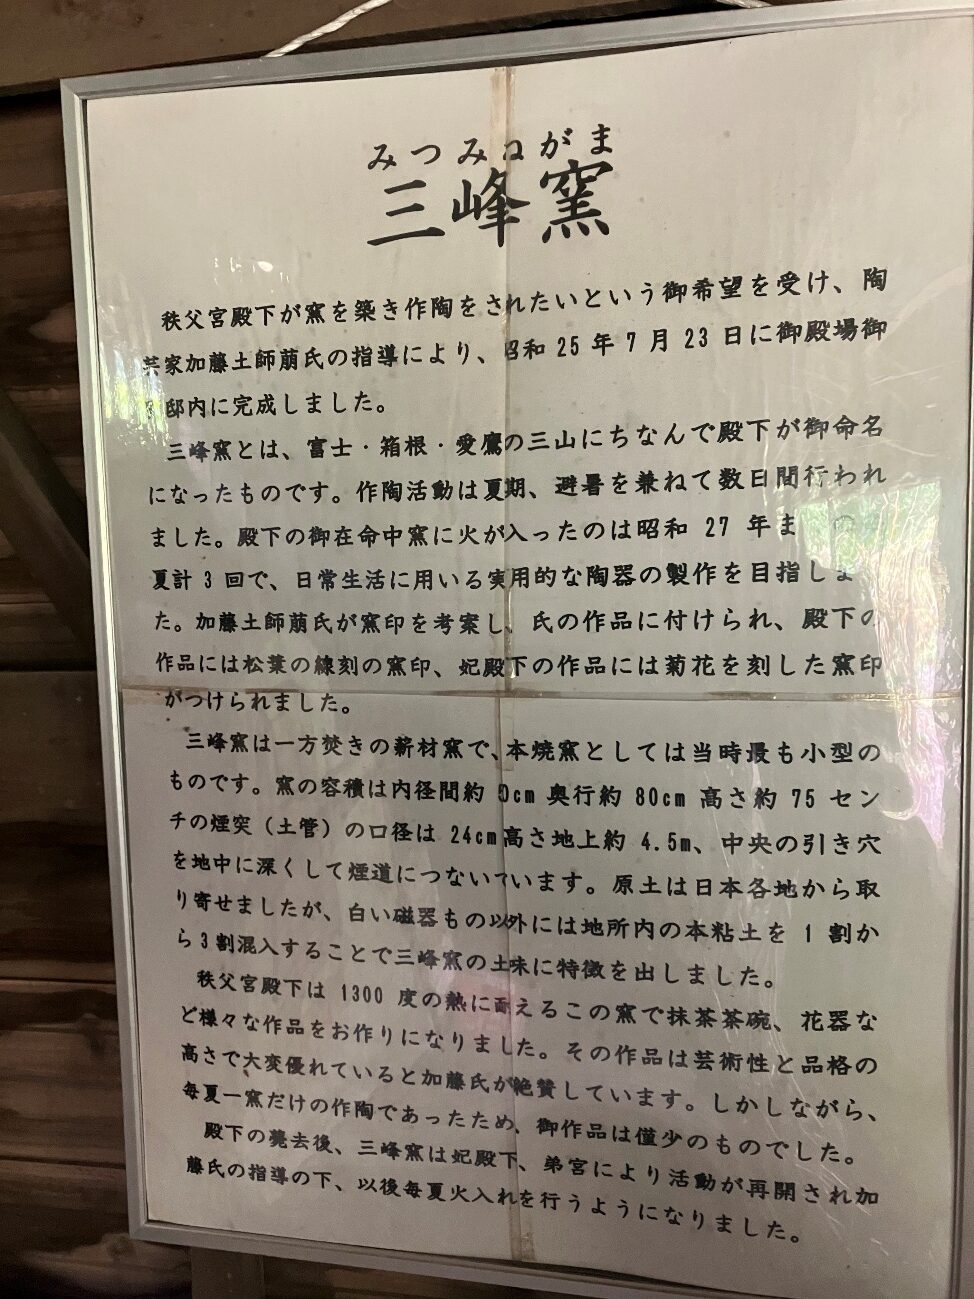 みつみねがま
三峰窯
秩父宮殿下が窯を築き作陶をされたいという御希望を受け、陶
芸家加藤土師萠氏の指導により、昭和 25 年 7 月 23 日に御殿場御
邸内に完成しました。
三峰窯とは、富士・箱根・愛鷹の三山にちなんで殿下が御命名
になったものです。作陶活動は夏期、避暑を兼ねて数日間行われ
ました。殿下の御在命中窯に火が入ったのは昭和 27 年まの
夏計 3 回で、日常生活に用いる実用的な陶器の製作を目指しまし
た。加藤土師萠氏が窯印を考案し、氏の作品に付けられ、殿下の
作品には松葉の線刻の窯印、妃殿下の作品には菊花を刻した窯印
がつけられました。
三峰窯は一方焚きの薪材窯で、本焼窯としては当時最も小型の
ものです。窯の容積は内径間約 0cm 奥行約 80cm 高さ約 75 セン
チの煙突（土管）の口径は 24cm 高さ地上約 4.5m、中央の引き穴
を地中に深くして煙道につないでいます。原土は日本各地から取
り寄せましたが、白い磁器もの以外には地所内の本粘土を 1 割か
ら 3 割混入することで三峰窯の土味に特徴を出しました。
秩父宮殿下は 1300 度の熱に耐えるこの窯で抹茶茶碗、花器な
ど様々な作品をお作りになりました。その作品は芸術性と品格の
高さで大変優れていると加藤氏が絶賛しています。しかしながら、
毎夏一窯だけの作陶であったため、御作品は僅少のものでした。
殿下の薨去後、三峰窯は妃殿下、弟宮により活動が再開され加
藤氏の指導の下、以後毎夏火入れを行うようになりました。